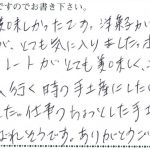 ですのでお書き下さい。
美味しかったです。洋菓子が
が、とても気に入りました。ホ
レートがとても美味しく、こ
へ行く時の手土産にした
した。仕事のちょっとした手土
なれそうです。ありがとうご